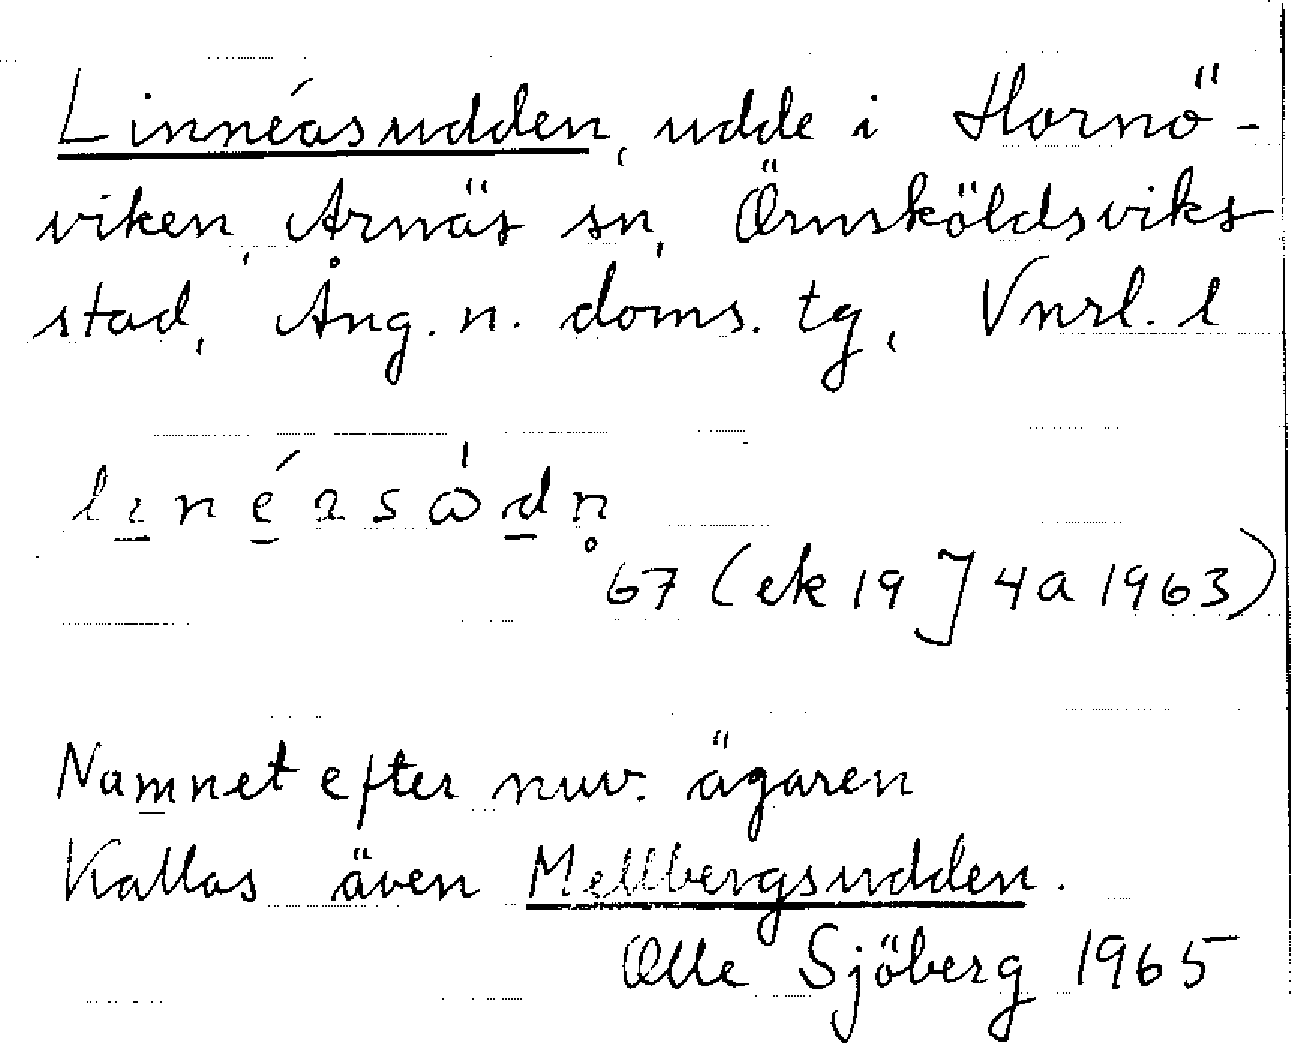 Linnéasudden, udde i Hornö-
viken, Arnäs sn, Örnsköldsviks
stad, Ång. n. doms. tg, Vnrl. l
67 (ek 19 J 4a 1963)
Namnet efter nuv. ägaren
Kallas även Mellbergsudden.
Olle Sjöberg 1965